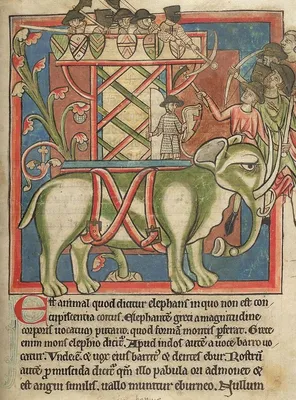 Est animal quod dicitur elephans in quo non est con
cupiscentia coitus. Elephantē greci a magnitudine
corporis uocatum putant, quod formā montis pferat. Grece
enim mons elephio dicit̄. Apud indos autē a uoce barro uo
catur. Unde & uox eius barrit' & dentes ebur. Rostrū
autē pmuscida dicit̄ qm̄ illo pabula ori admouet &
est angui similis, uallo munitur eburneo. Nullum